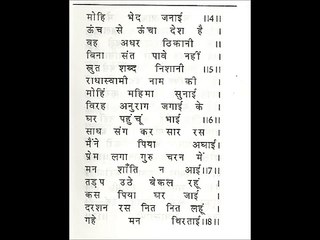 मोहि भेद जनाई ॥4॥
ऊंच से ऊंचा देश है ।
वह अधर ठिकानी
बिना संत पावे नहीं
स्रुत शब्द निशानी ॥5॥
राधास्वामी नाम की
मोहिं महिमा सुनाई
विरह अनुराग जगाई के
घर पहुंचूं भाई ॥6॥
साध संग कर सार रस
मैंने पिया अघाई
प्रेम लगा गुरु चरन में
मन शाँति न आई ॥7॥
तड़प उठे बेकल रहूं
कस पिया घर जाई
दरशन रस नित नित लहूं
गहे मन थिरताई ॥8॥